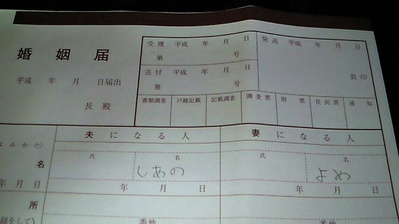 婚姻届
平成 年 月 日届出
長 殿
受理 平成 年 月 日
第 号
発送 平成 年 月 日
送付 平成 年 月 日
第 号
長印
書類調査 戸籍記載 記載調査 調査票 附票 住民票 通知
夫になる人 妻になる人
氏 名 氏 名
名 しあの よめ
年 月 日 年 月 日 年 月 日
所
番地 番地